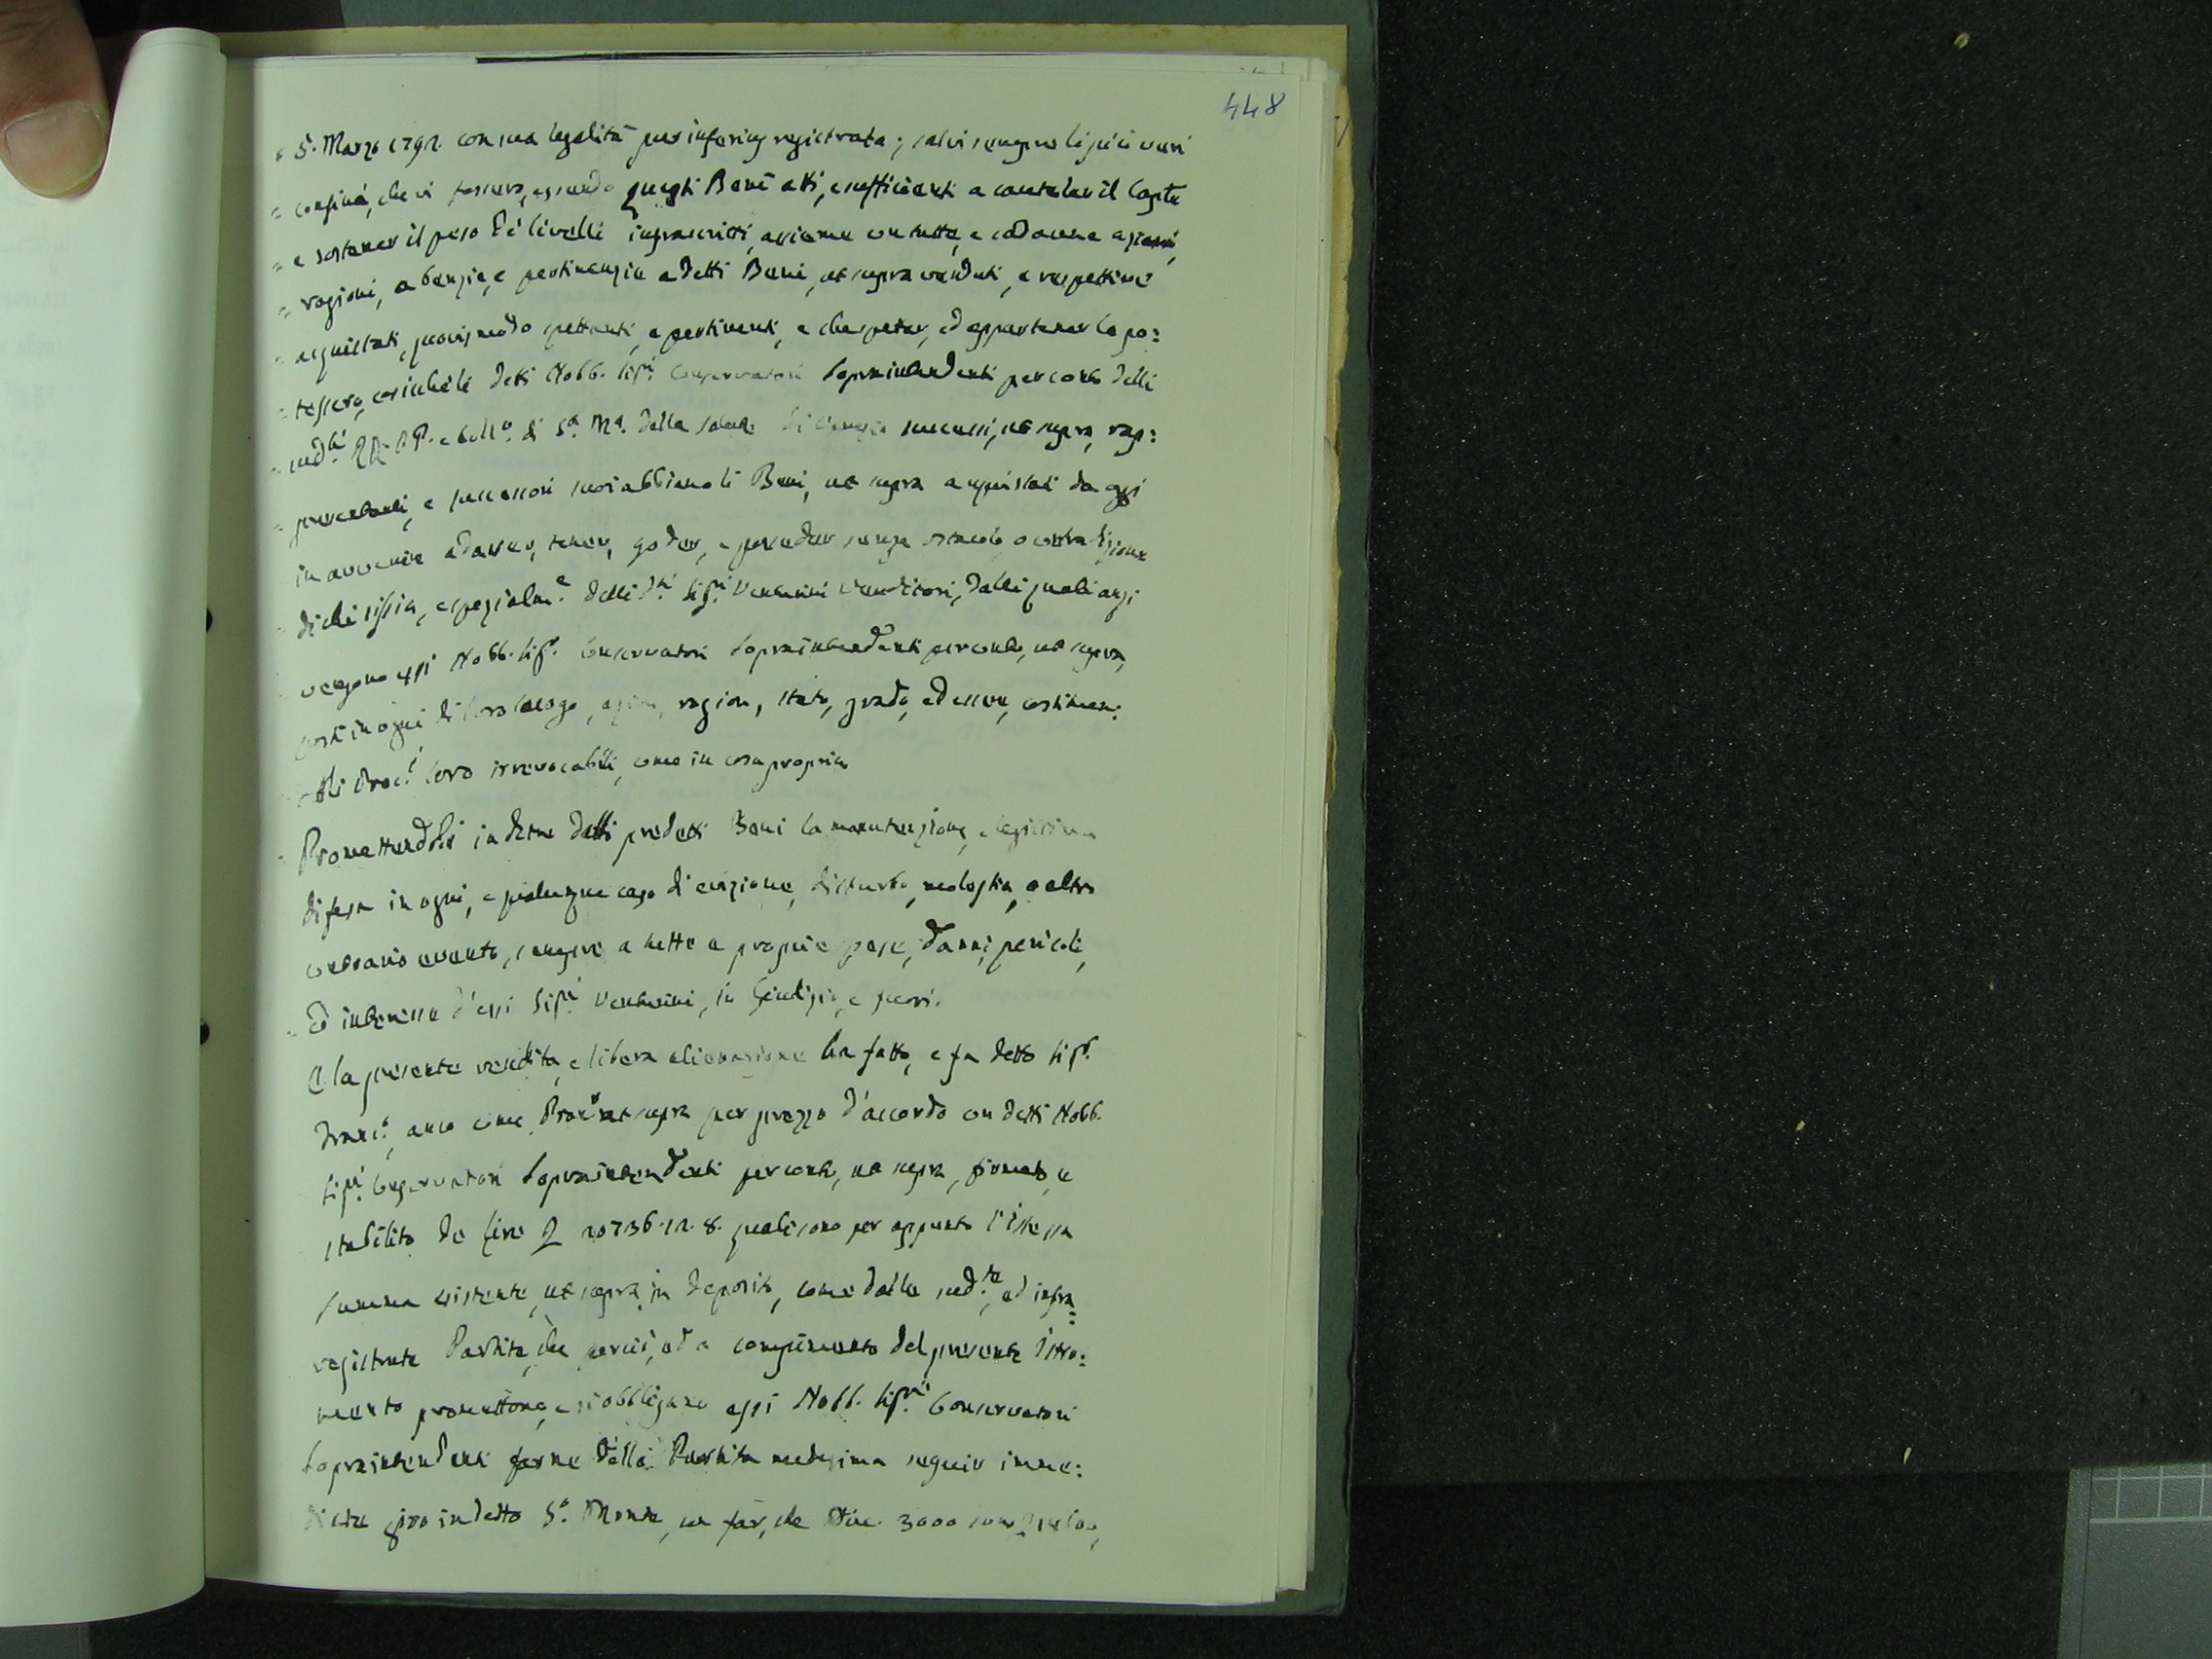 448
5. Marzo 1792. con sua legalità per inferius registrata; salvi sempre li più veri
confini, che vi fossero, essendo questi Beni atti, e sufficienti a cautelar il Capitle
e sostener il peso de' livelli infrascritti, assieme con tutte, e cadaune azioni,
ragioni, abenzie, e pertinenzie a detti Beni, ut supra venduti, e respettive
acquistati, quovis modo spettanti, e pertinenti, e che spettar, ed appartener le po:
tessero, cosicchè li detti Nobb. Sigri Conservatori Sopraintendenti per conto delli
sudti RR. PP. e Coll.o di S.a M.a della Salute di Venezia successi, ut supra, rap:
presentanti, e successori suoi abbiano li Beni, ut supra acquistati da oggi
in avvenire ad aver, tener, goder, e posseder senza ostacolo, o contradizione
di chi sisia, e spezialm.e delli d.ti Sig.ri Venturini Venditori, dalli quali anzi
vengono essi Nobb. Sig.ri Conservatori Sopraintendenti per conto, ut supra,
posti in ogni di loro luogo, azion, ragion, stato, grado, ed essere, costituen:
doli Proc.i loro irrevocabili, come in cosa propria
Promettendoli inoltre delli predetti Beni la manutenzione, e legittima
difesa in ogni, e qualunque caso di evizione, disturbo, molestia, o altro
contrario evento, sempre a tutte e proprie spese, danni, pericoli,
ed interesse d'essi Sig.ri Venturini, in Giudizio, e fuori.
E la presente vendita, e libera alienazione ha fatto, e fa detto Sig.r
Franc.o, anco come Proc.r ut supra per prezzo d'accordo con detti Nobb.
Sig.ri Conservatori Sopraintendenti per conto, ut supra, firmato, e
stabilito de lire 20736.12.8. quali sono per appunto l'istessa
summa esistente, ut supra, in deposito, come dalle sud.te, ed infra
registrate Partite, che perciò, ed a compimento del presente Istro:
mento promettono, e si obbligano essi Nobb. Sig.ri Conservatori
Sopraintendenti farne della Partita medesima seguir imme:
diate giro in detto S.o Monte, con far, che 3000